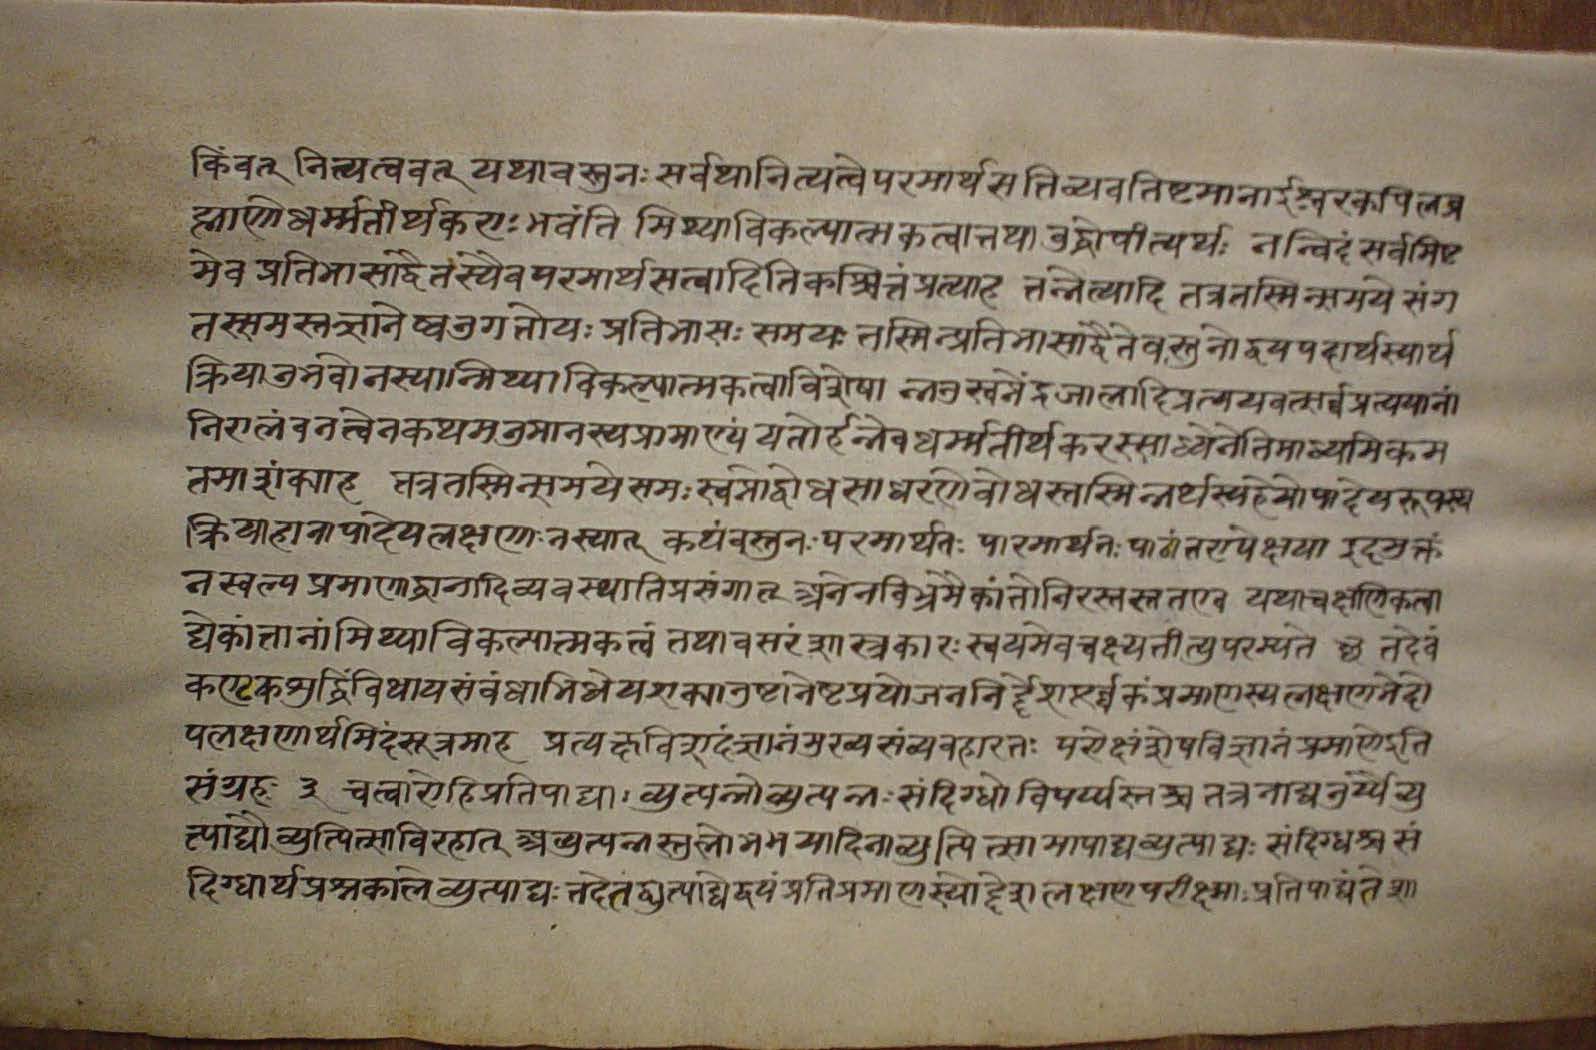 किंवत् नित्यत्ववत् यथावस्तुनः सर्वथानित्यत्वेपरमार्थसत्तिव्यवतिष्टमानाईश्वरकपिलब्र
ह्माणोधर्म्मतीर्थकराः भवंति मिथ्याविकल्पात्मकत्वात्तथा बुद्धोपीत्यर्थः नन्विदंसर्वमिष्ट
मेव प्रतिभासाद्वैतस्यैवपरमार्थसत्वादितिकश्चित्तंप्रत्याह तन्नेत्यादि तत्रतस्मिन्समये संग
तस्समस्तज्ञानेष्वनुगतोयः प्रतिभासः समयः तस्मिन्प्रतिभासाद्वैतेवस्तुनोद्वयपदार्थस्यार्थ
क्रियानुभवोनस्यान्मिथ्याविकल्पात्मकत्वाविशेषा न्ननुस्वप्नेंद्रजालादिप्रत्ययवत्सर्वप्रत्ययानां
निरालंबनत्वेनकथमनुमानस्यप्रामाण्यं यतोर्हन्नेवधर्म्मतीर्थकरस्साध्येनेतिमाध्यमिकम
तमाशंक्याह तत्रतस्मिन्समयेसमः स्वप्नोद्बोधसाधरणोबोधस्तस्मिन्नर्थस्यहेयोपादेयरूपस्य
क्रियाहानोपादेयलक्षणा नस्यात् कथंवस्तुनः परमार्थतः पारमार्थतः पाठांतरापेक्षया इदमुक्तं
नस्वल्पप्रमाणाद्धानादिव्यवस्थातिप्रसंगात् अनेनविभ्रमैकांतोनिरस्तस्ततएव यथाचक्षणिकत्वा
द्येकांतानांमिथ्याविकल्पात्मकत्वं तथावसरंशास्त्रकारः स्वयमेववक्ष्यतीत्युपरम्यते छ तदेवं
कण्टकशुद्धिंविधायसंबंधाभिधेयशक्यानुष्टानेष्टप्रयोजननिर्द्देशपूर्व्वकंप्रमाणस्यलक्षणभेदो
पलक्षणार्थमिदंसूत्रमाह प्रत्यक्षविशदंज्ञानंमुख्यसंव्यवहारतः परोक्षंशेषविज्ञानंप्रमाणेइति
संग्रहः ३ चत्वारोहिप्रतिपाद्याः व्युत्पन्नोव्युत्पन्नः संदिग्धो विपर्य्यस्तश्च तत्रनाद्यतुर्य्यौव्यु
त्पाद्यौव्युत्पित्साविरहात् अव्युत्पन्नस्तुलोभभयादिनाव्युत्पित्सामापाद्यव्युत्पाद्यः संदिग्धश्च सं
दिग्धार्थप्रश्नकालेव्युत्पाद्यः तदेतंद्व्युत्पाद्येद्वयंप्रतिप्रमाणस्योद्देशलक्षणपरीक्षाः प्रतिपाद्यंतेशा